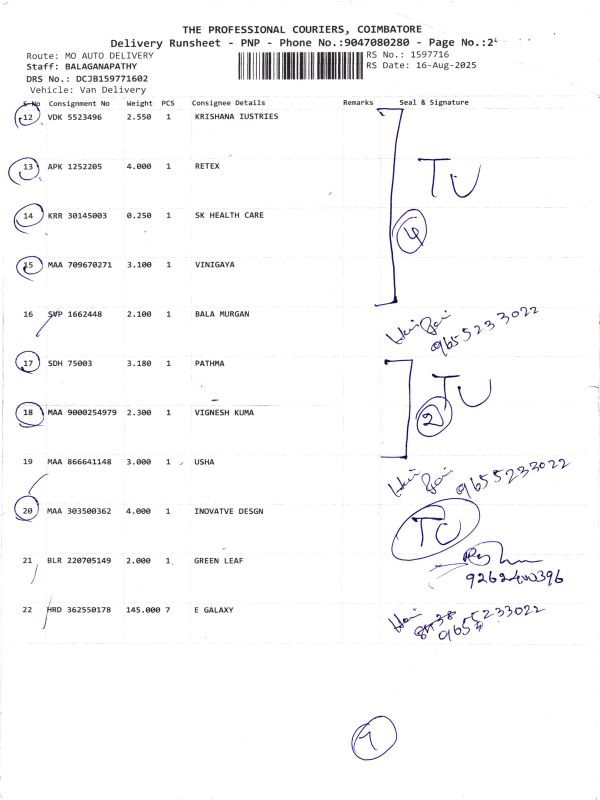 THE PROFESSIONAL COURIERS, COIMBATORE
Delivery Runsheet - PNP - Phone No.:9047080280 - Page No.:2
Route: MO AUTO DELIVERY
RS No.: 1597716
Staff: BALAGANAPATHY
RS Date: 16-Aug-2025
DRS No.: DCJB159771602
Vehicle: Van Delivery
S No Consignment No Weight PCS Consignee Details Remarks Seal & Signature
12 VDK 5523496 2.550 1 KRISHANA IUSTRIES
13 APK 1252205 4.000 1 RETEX
TU
14 KRR 30145003 0.250 1 SK HEALTH CARE
4
15 MAA 709670271 3.100 1 VINIGAYA
16 SVP 1662448 2.100 1 BALA MURGAN
9655233022
17 SDH 75003 3.180 1 PATHMA
TU
18 MAA 9000254979 2.300 1 VIGNESH KUMA
2
19 MAA 866641148 3.000 1 USHA
9655233022
20 MAA 303500362 4.000 1 INOVATVE DESGN
TU
21 BLR 220705149 2.000 1 GREEN LEAF
9262400396
22 HRD 362550178 145.000 7 E GALAXY